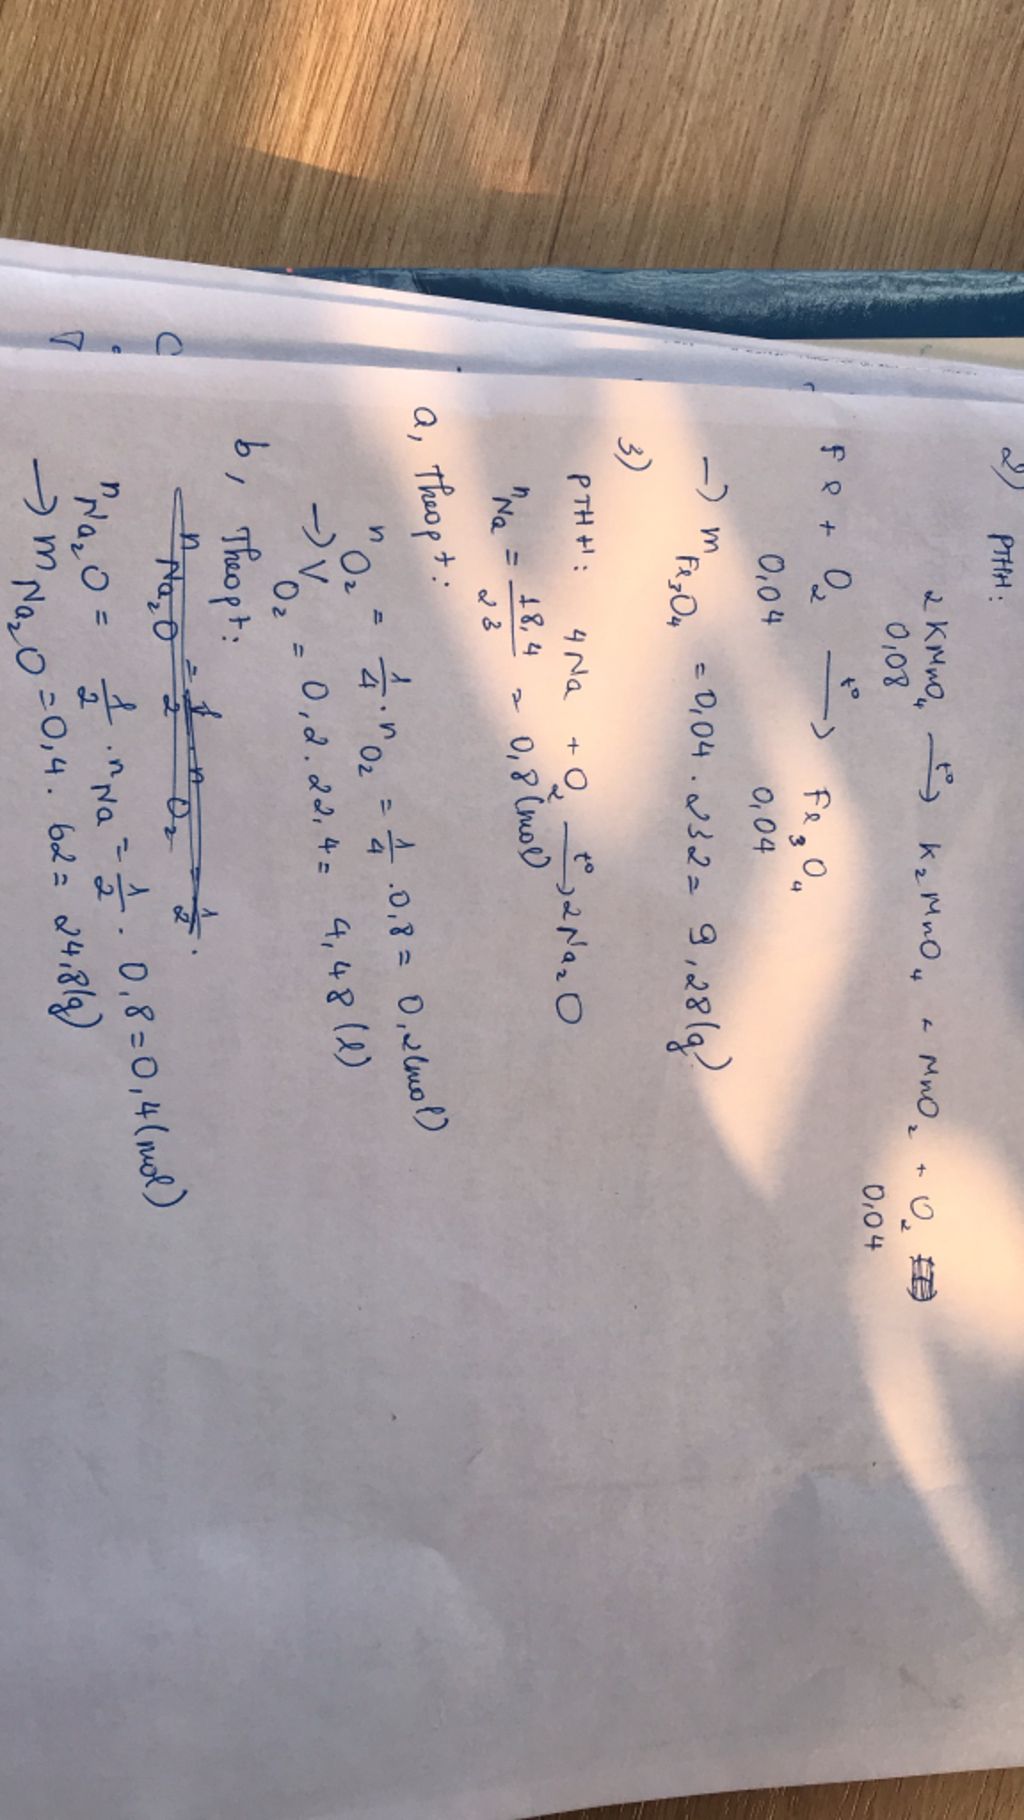 2) PTHH:
2 KMnO₄ —t°→ K₂MnO₄ + MnO₂ + O₂
0,08 0,04
Fe + O₂ —t°→ Fe₃O₄
0,04 0,04
→ m Fe₃O₄ = 0,04 . 232 = 9,28(g)
3)
PTHH: 4Na + O₂ —t°→ 2Na₂O
n Na = 18,4/23 = 0,8(mol)
a, Theo pt:
n O₂ = 1/4 . n O₂ = 1/4 . 0,8 = 0,2(mol)
→ V O₂ = 0,2 . 22,4 = 4,48 (l)
b, Theo pt:
n Na₂O = 1/2 . n Na = 1/2 . 0,8 = 0,4(mol)
→ m Na₂O = 0,4 . 62 = 24,8(g)